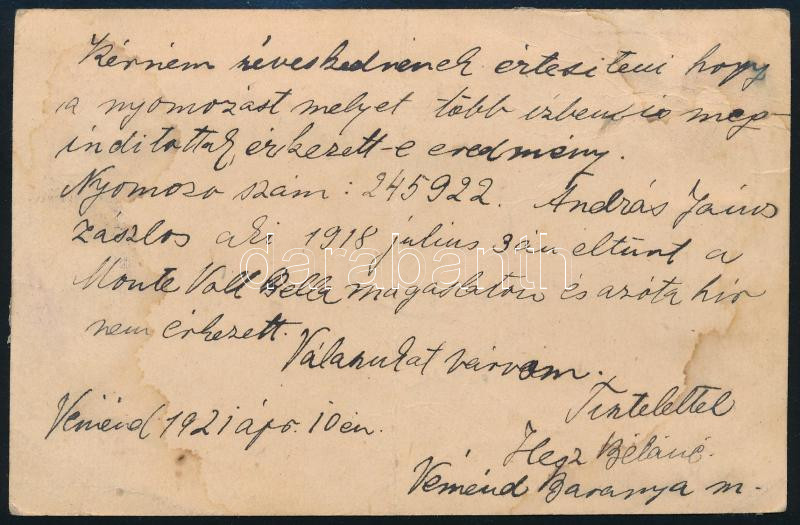 Kérném szíveskednének értesíteni hogy
a nyomozást melyet több izben is meg-
indítottak, érkezett-e eredmény.
Nyomozo szám: 245922. András János
zászlos aki 1918 július 3án eltünt a
Monte Vall Bella magaslaton és azóta hír
nem érkezett.
Válaszukat várván.
Tisztelettel
Véménd 1921 ápr. 10én.
Hesz Béláné.
Véménd Baranya m.
darabanth